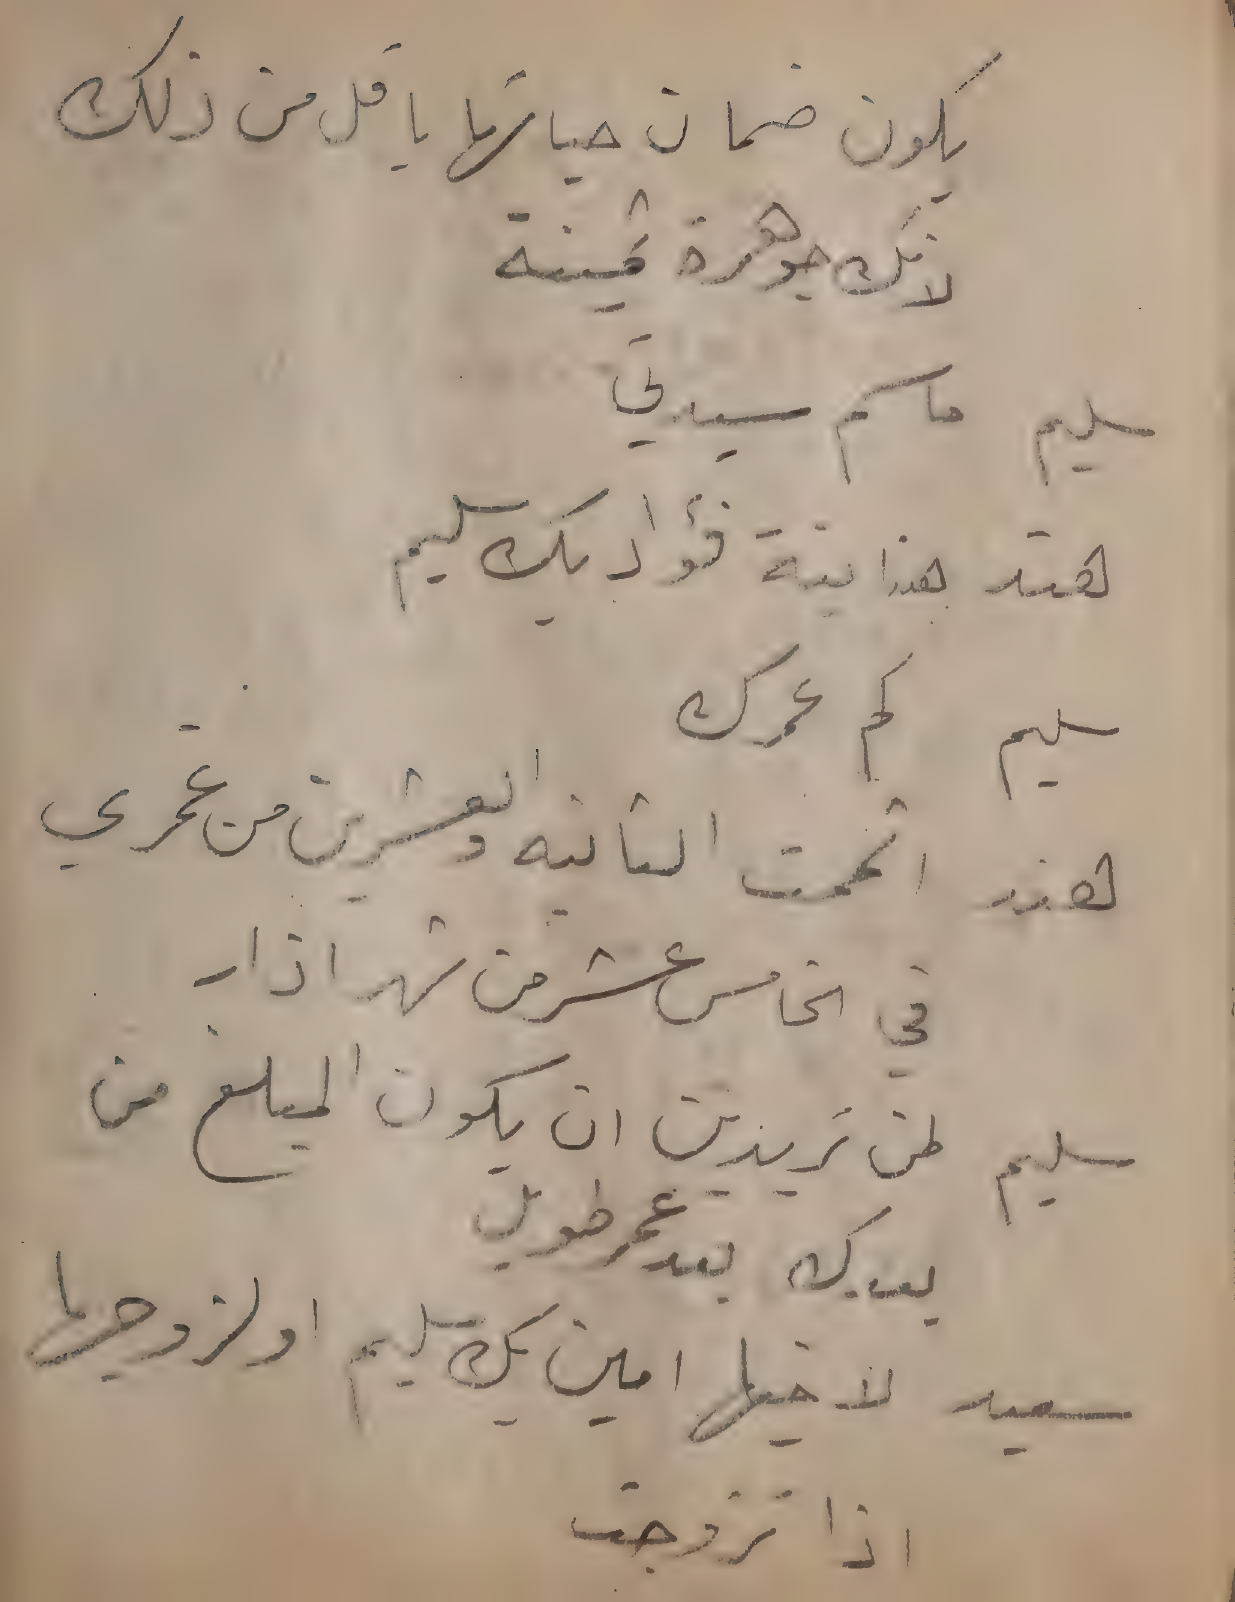 يكون ضمان حياتها باقل من ذلك
لانك جوهرة ثمينة
سليم ماسم سيدتي
هند هندابنة فؤاد بك سليم
سليم كم عمرك
هند اتممت الثانيه والعشرين من عمري
في الخامس عشر من شهر اذار
سليم لمن تريدين ان يكون المبلغ من
بعدك بعد عمر طويل
سعيد لاخيها امين بك سليم او لزوجها
اذا تزوجت